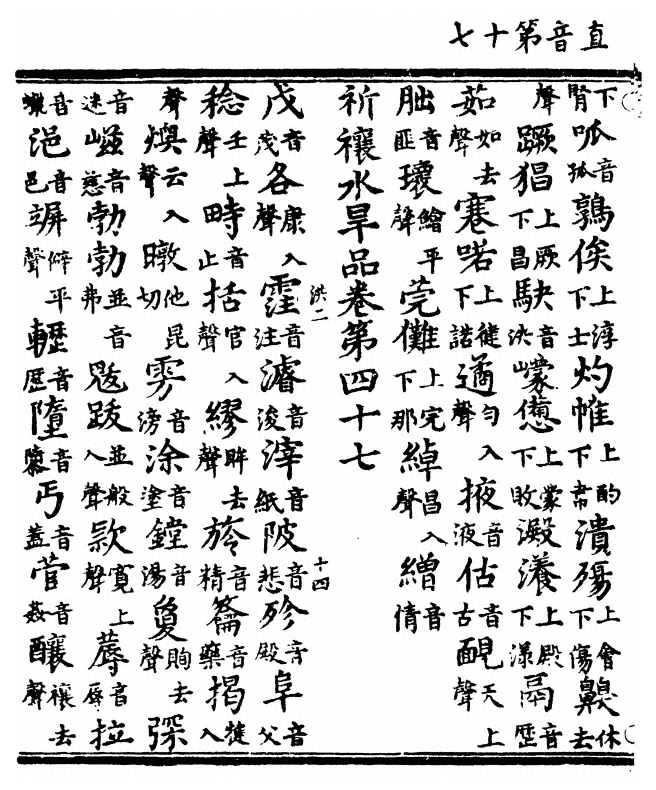 直音第十七
下腎呱音孤鶉俟上淳下士灼帷上酌下帯潰殤上會下傷鼽休去
聲蹶猖上厥下昌駃音決㠓憊上蒙下敗澱瀁上殿下漾鬲音歷
茹如去聲蹇喏上徤下諾遹勻入聲掖音液估音古靦天上聲
朏音匪瓌繪平聲莞儺上完下那綽昌入聲繒音情
祈禳水旱品卷第四十七
洪二 十四
戊音茂各康入聲霔音注濬音浚滓音紙陂音悲殄音殿阜音父
稔壬上聲畤音止括官入聲繆眸去聲旍音精籥音藥揭徤入
聲燠云入聲暾他昆切雱音滂涂音塗鏜音湯敻眴去聲琛
音迷嵫音慈勃勃並音弗魃跋並般入聲款寬上聲蓐音辱拉
音蠟浥音邑竮俜平聲轣音歷墮音隳丐音蓋菅音姦釀音禳去聲